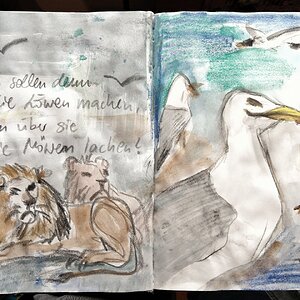 sollen denn
die Löwen machen,
wenn über sie
die Möwen lachen?